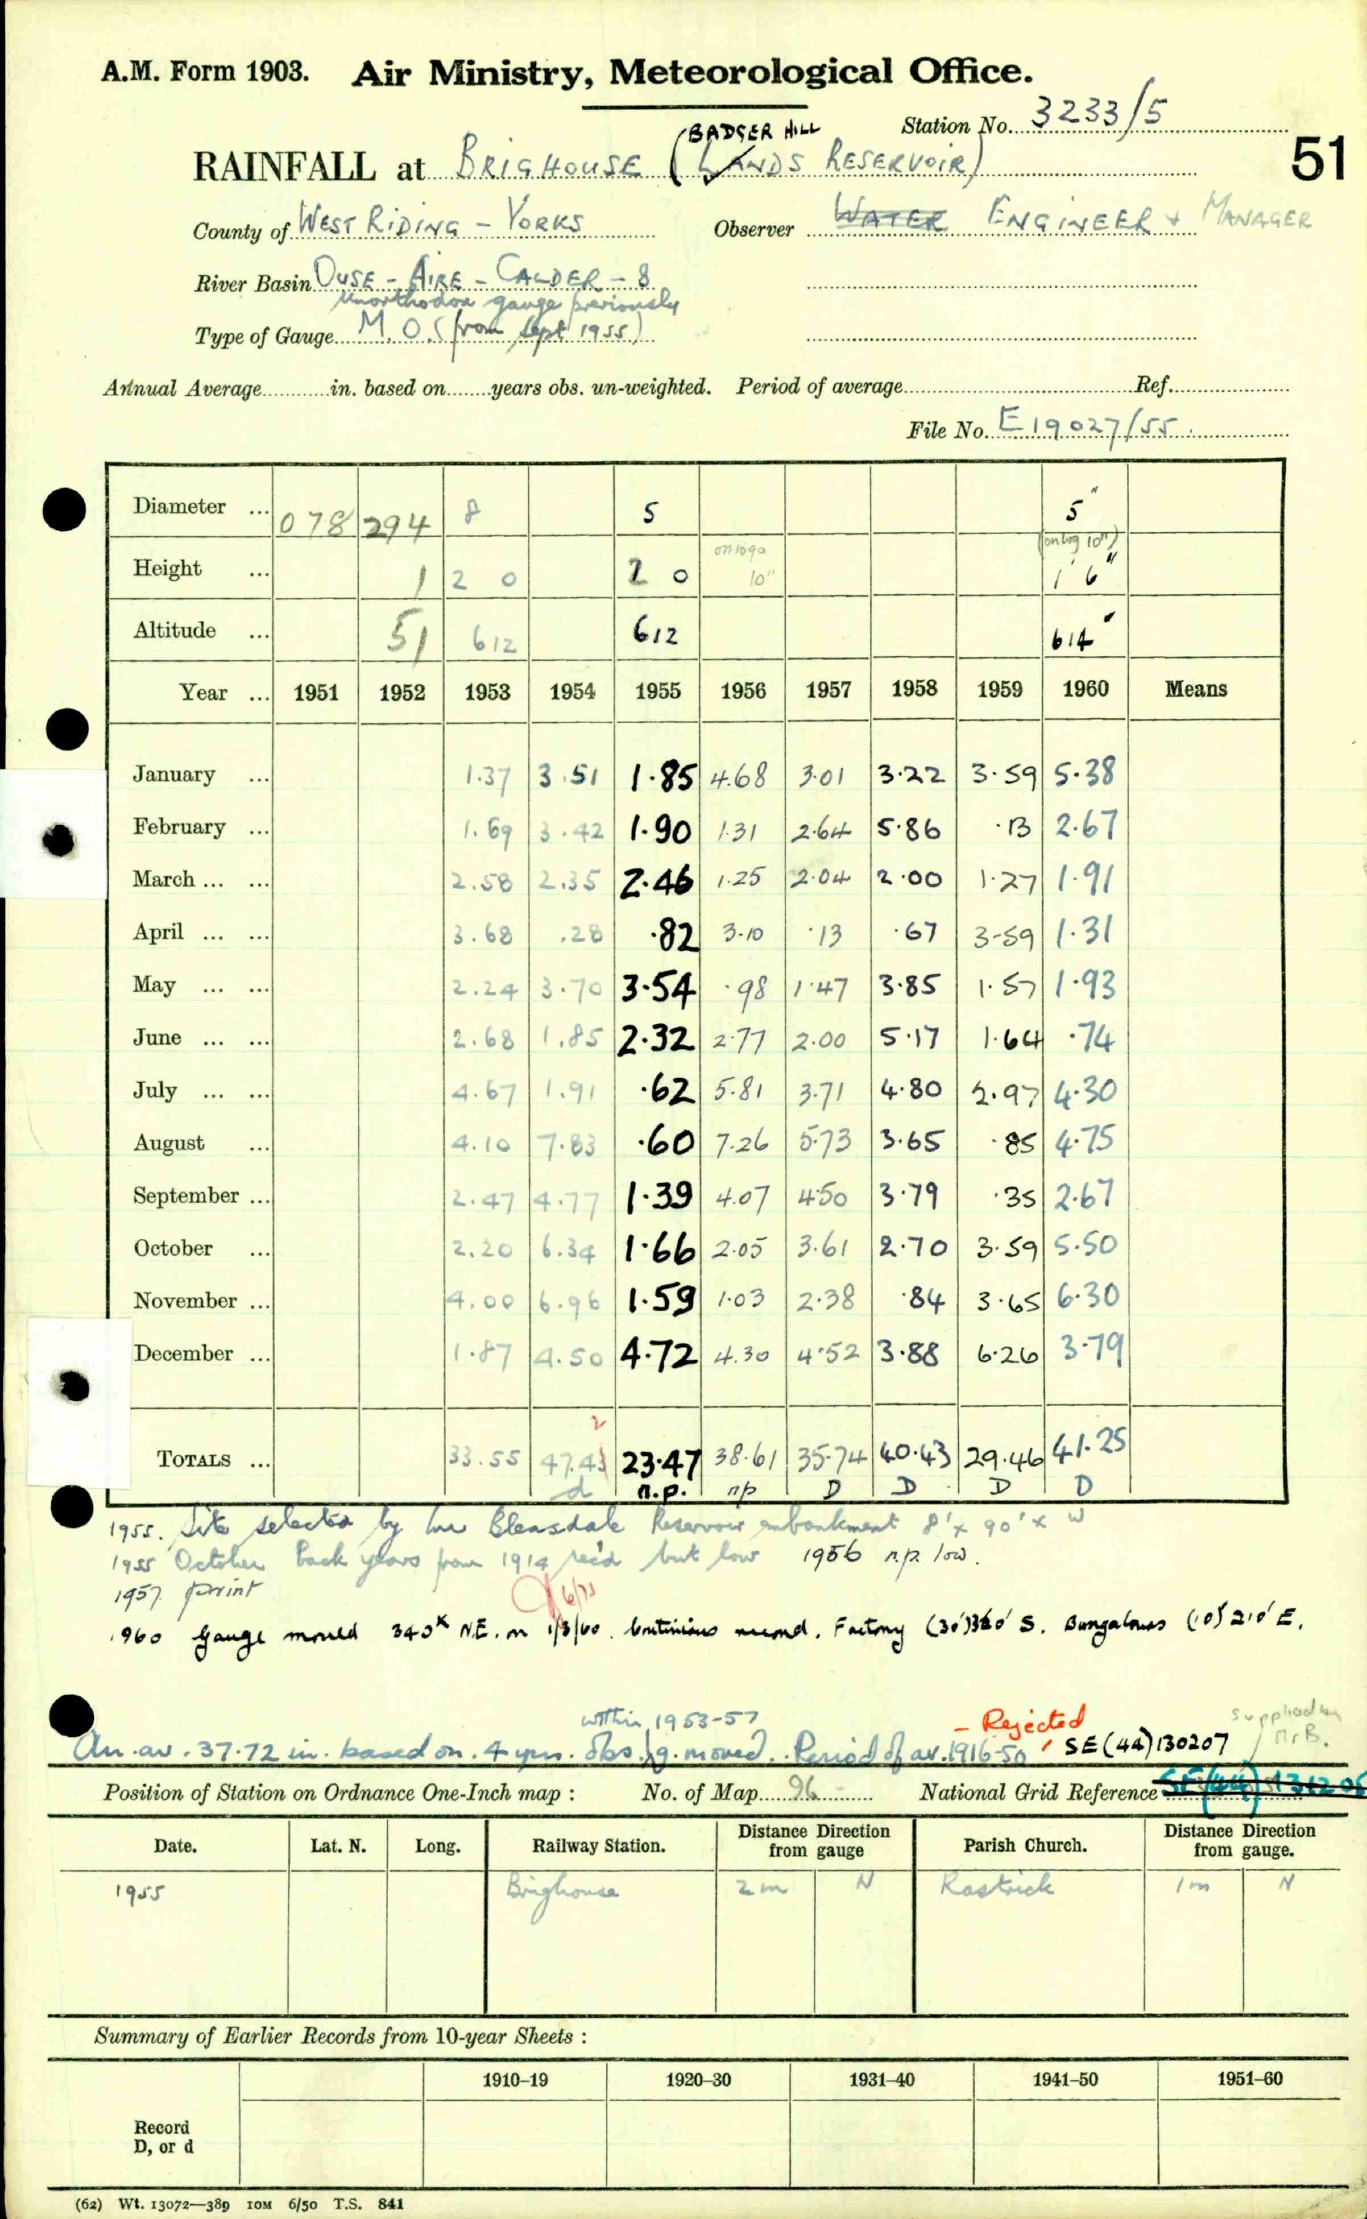 A.M. Form 1903. Air Ministry, Meteorological Office.
Station No. 3233/5
51
BADGER HILL
RAINFALL at BRIGHOUSE (LANDS RESERVOIR)
County of WEST RIDING - YORKS Observer WATER ENGINEER + MANAGER
River Basin OUSE - AIRE - CALDER - 8
unorthodox gauge previously
Type of Gauge M.O. (from Sept 1955)
Annual Average in. based on years obs. un-weighted. Period of average Ref.
File No. E19027/55.
Diameter ... 078 294 8 5 5"
(on log 10")
Height ... 1 2 0 2 0 10" 1' 6"
Altitude ... 51 612 612 614'
Year ... 1951 1952 1953 1954 1955 1956 1957 1958 1959 1960 Means
January ... 1.37 3.51 1.85 4.68 3.01 3.22 3.59 5.38
February ... 1.69 3.42 1.90 1.31 2.64 5.86 .13 2.67
March ... ... 2.58 2.35 2.46 1.25 2.04 2.00 1.27 1.91
April ... ... 3.68 .28 .82 3.10 .13 .67 3.59 1.31
May ... ... 2.24 3.70 3.54 .98 1.47 3.85 1.57 1.93
June ... ... 2.68 1.85 2.32 2.77 2.00 5.17 1.64 .74
July ... ... 4.67 1.91 .62 5.81 3.71 4.80 2.97 4.30
August ... 4.10 7.83 .60 7.26 5.73 3.65 .85 4.75
September ... 2.47 4.77 1.39 4.07 4.50 3.79 .35 2.67
October ... 2.20 6.34 1.66 2.05 3.61 2.70 3.59 5.50
November ... 4.00 6.96 1.59 1.03 2.38 .84 3.65 6.30
December ... 1.87 4.50 4.72 4.30 4.52 3.88 6.26 3.79
2
TOTALS ... 33.55 47.43 23.47 38.61 35.74 40.43 29.46 41.25
d n.p. np D D D D
1955. Site selected by Mr Bleasdale Reservoir embankment 8' x 90' x W
1955 October Back years from 1914 rec'd but low 1956 n.p. low.
1957 print
6/75
1960 Gauge moved 340x N.E. on 1/3/60. Continuous record. Factory (30') 360' S. Bungalows (10') 210' E.
within 1953-57
- Rejected
supplied by Mr B.
An. av. 37.72 in. based on 4 yrs. obs. g. moved. Period of av. 1916-50 SE(44)130207
Position of Station on Ordnance One-Inch map : No. of Map 96 National Grid Reference SE(44)131206
Date. Lat. N. Long. Railway Station. Distance from gauge Direction Parish Church. Distance from gauge. Direction
1955 Brighouse 2m N Rastrick 1m N
Summary of Earlier Records from 10-year Sheets :
1910–19 1920–30 1931–40 1941–50 1951–60
Record
D, or d
(62) Wt. 13072—389 10M 6/50 T.S. 841